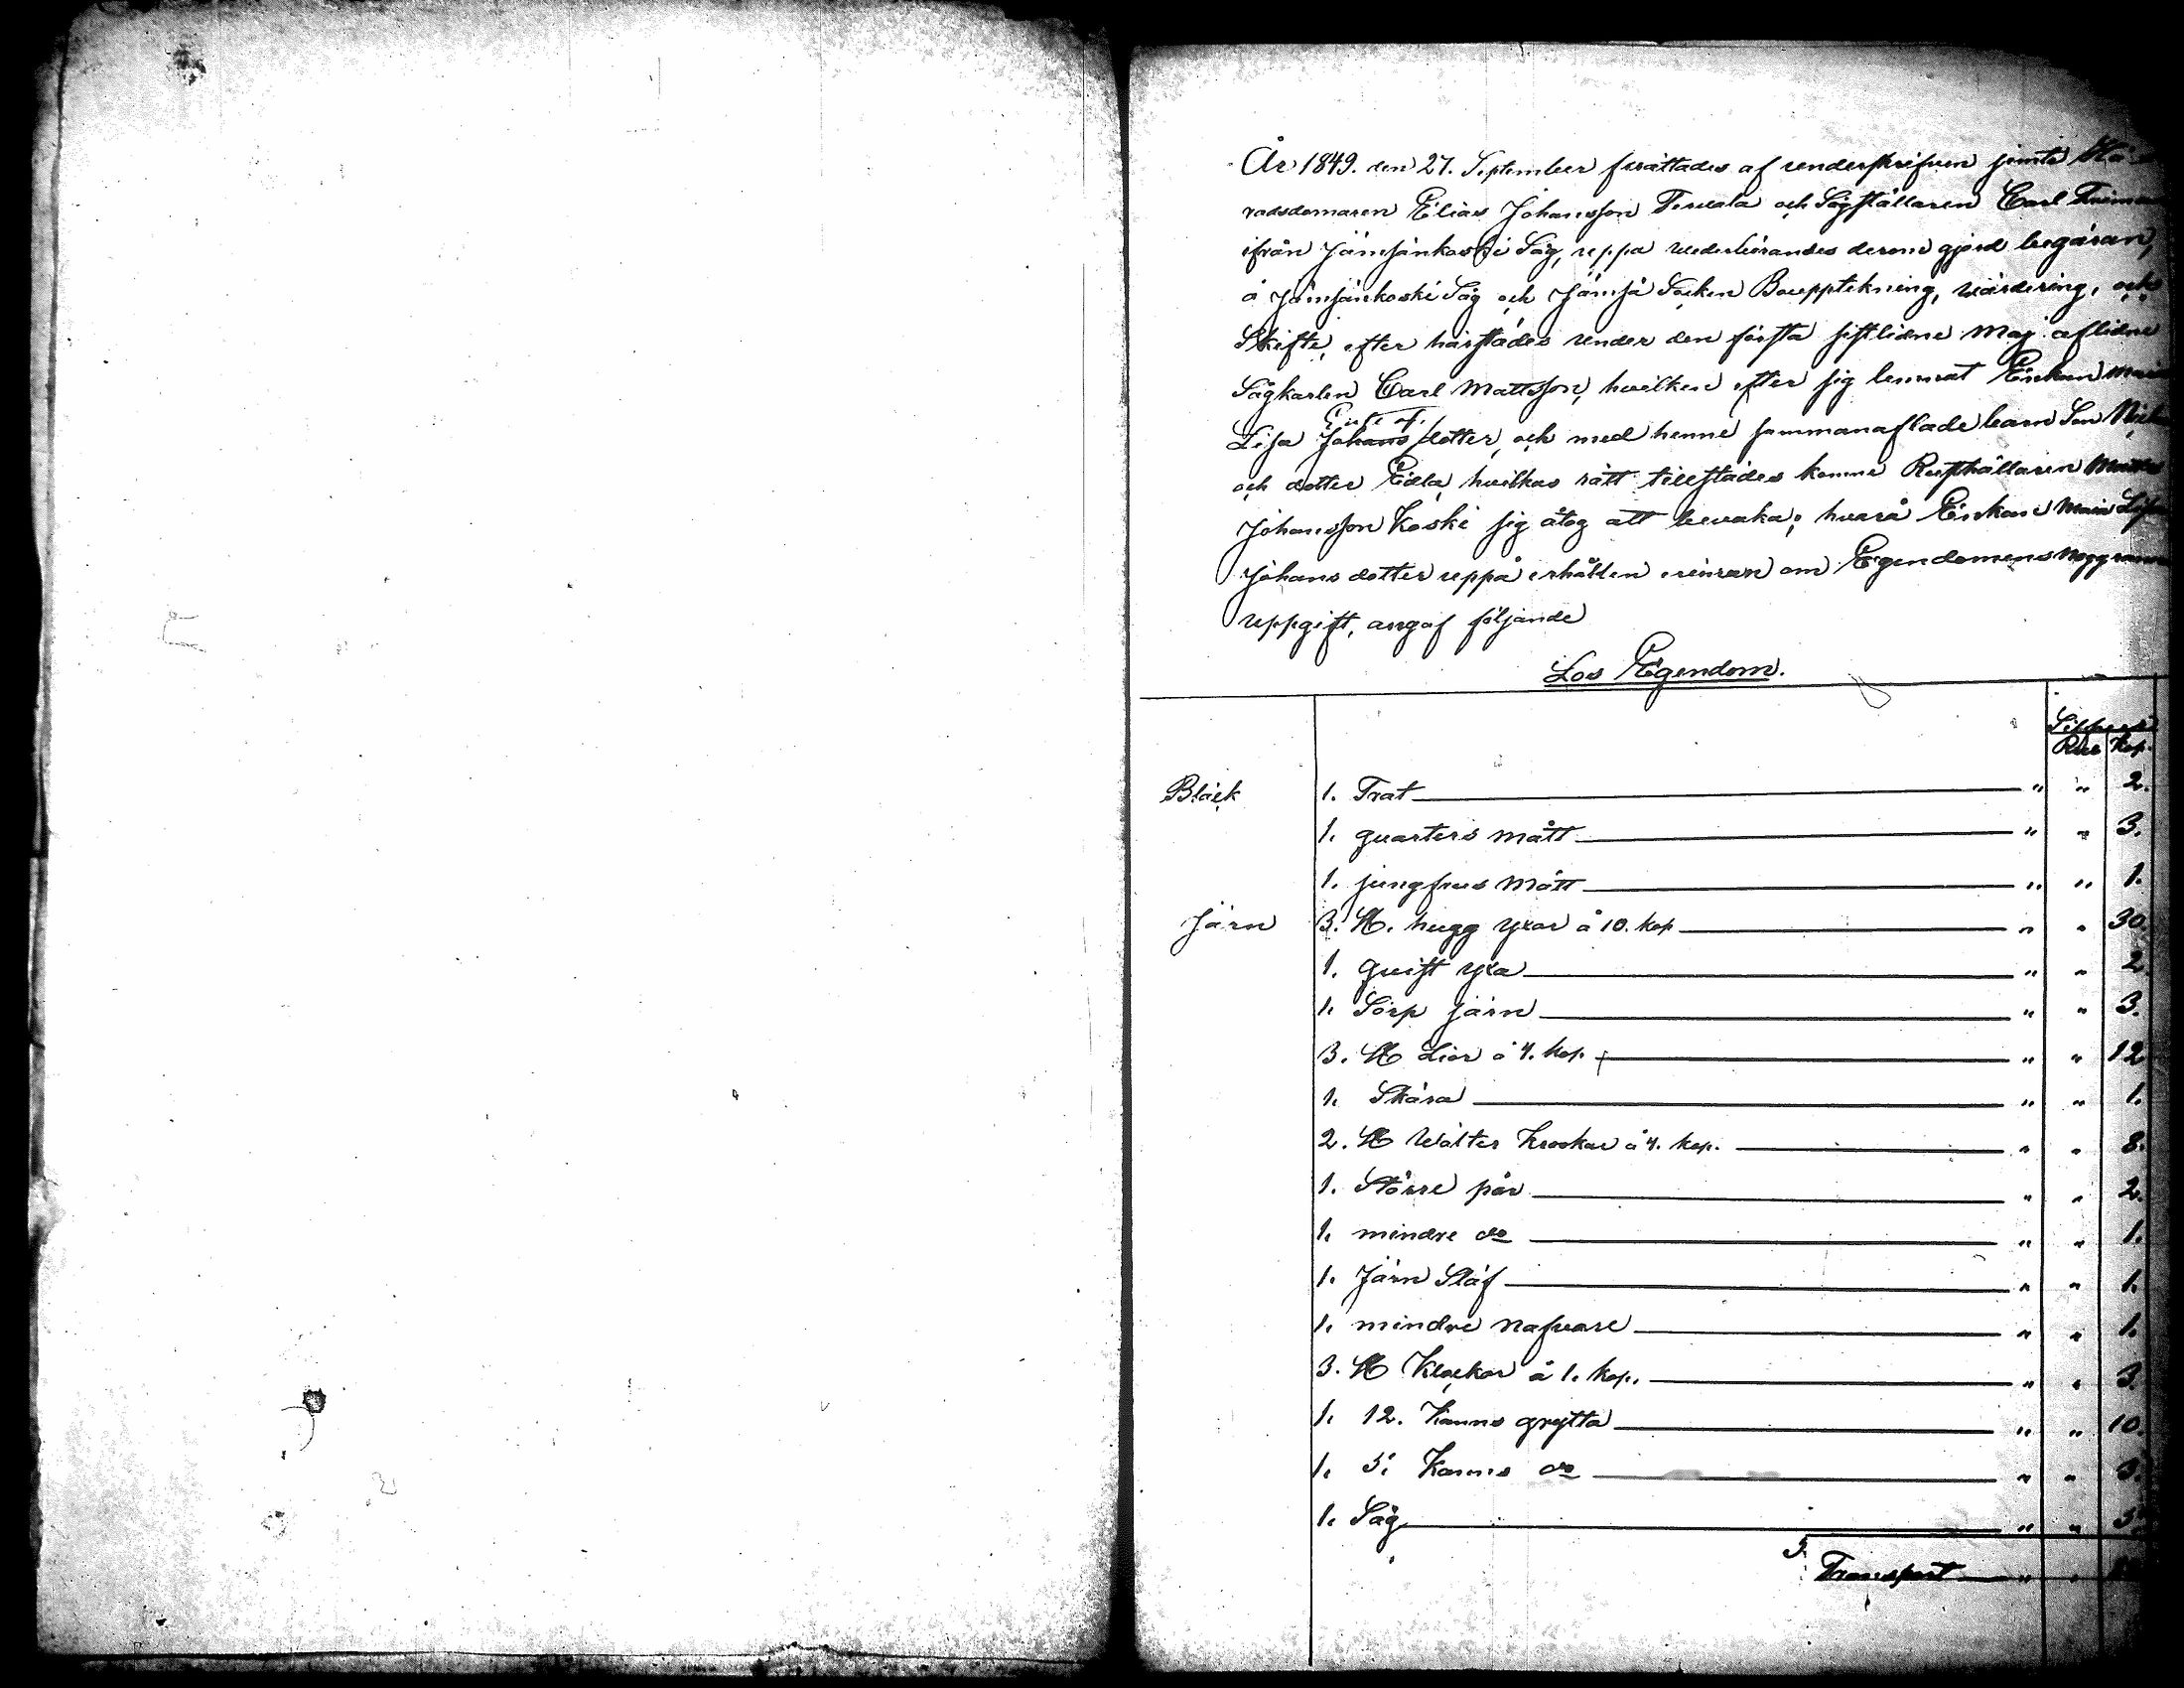 År 1849. den 27. September förrättades af underskrifven jemte Hä-
radsdomaren Elias Johansson Tervala och Sågställaren Carl
ifrån Jämsänkoski Såg, uppå vederbörandes derom gjord begäran,
å Jämsänkoski Såg och Jämsä Socken Bouppteckning, värdering, och
Skifte, efter härstädes under den första sistlidne Maj aflidne
Sågkarlen Carl Mattsson, hvilken efter sig lemnat Enkan Maria
Lisa Johans dotter, och med henne sammanaflade barn Son
och dotter Edla, hvilkas rätt tillstädes komne Rusthållaren Matts
Johansson Koski sig åtog att bevaka; hvarå Enkan Maria Lisa
Johans dotter uppå erhållen erinran om Egendomens noggranna
uppgift, angaf följande
Lös Egendom.
Silfver
Rub Kop.
Bläck 1. Trat " " 2.
1. quarters mått " " 3.
1. jungfrus mått " " 1.
Järn 3. St. hugg yxor à 10. kop " " 30.
1. quist yxa " " 2.
1. Sörp järn " " 3.
3. St Liar à 4. kop. " " 12
1. Skära " " 1.
2. St Wälter Krokar à 4. kop. " " 8.
1. Större pår " " 2.
1. mindre do " " 1.
1. Järn Släf " " 1.
1. mindre nafvare " " 1.
3. St Klockor à 1. kop. " " 3.
1. 12. Kanns grytta " " 10.
1. 5. Kanns do " " 3.
1. Såg " " 5.
Transport " "